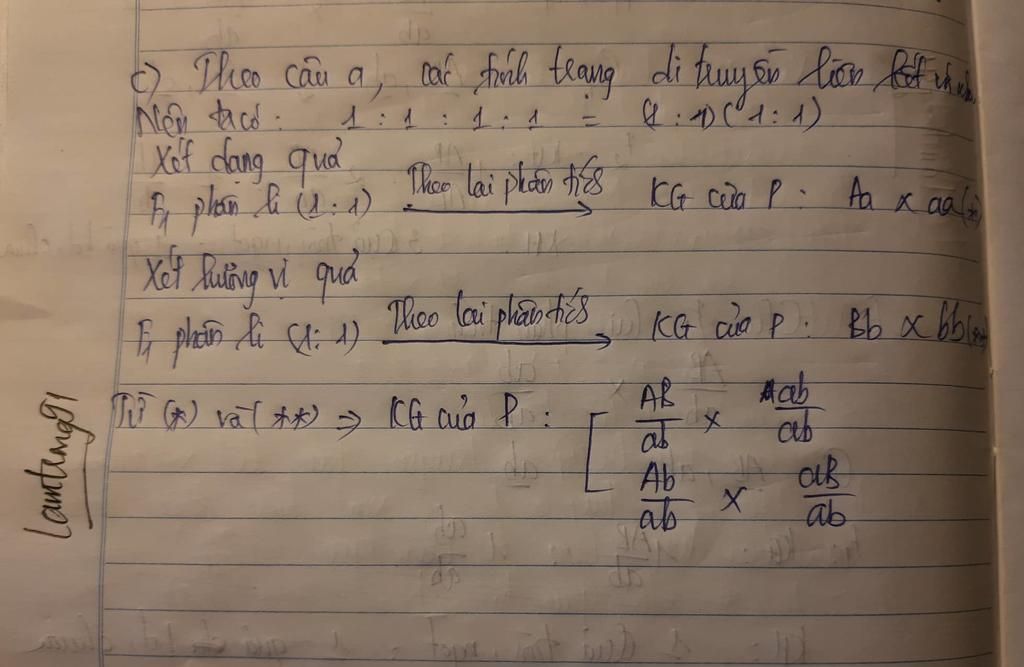 c) Theo câu a, các tính trạng di truyền liên kết
Nên ta có: 1 : 1 : 1 : 1 = (1 : 1)(1 : 1)
Xét dạng quả
F1 phân li (1 : 1) Theo lai phân tích → KG của P : Aa x aa (*)
Xét hương vị quả
F1 phân li (1 : 1) Theo lai phân tích → KG của P : Bb x bb (**)
Từ (*) và (**) => KG của P : [ AB/ab x ab/ab
Ab/ab x aB/ab
Lamtang91